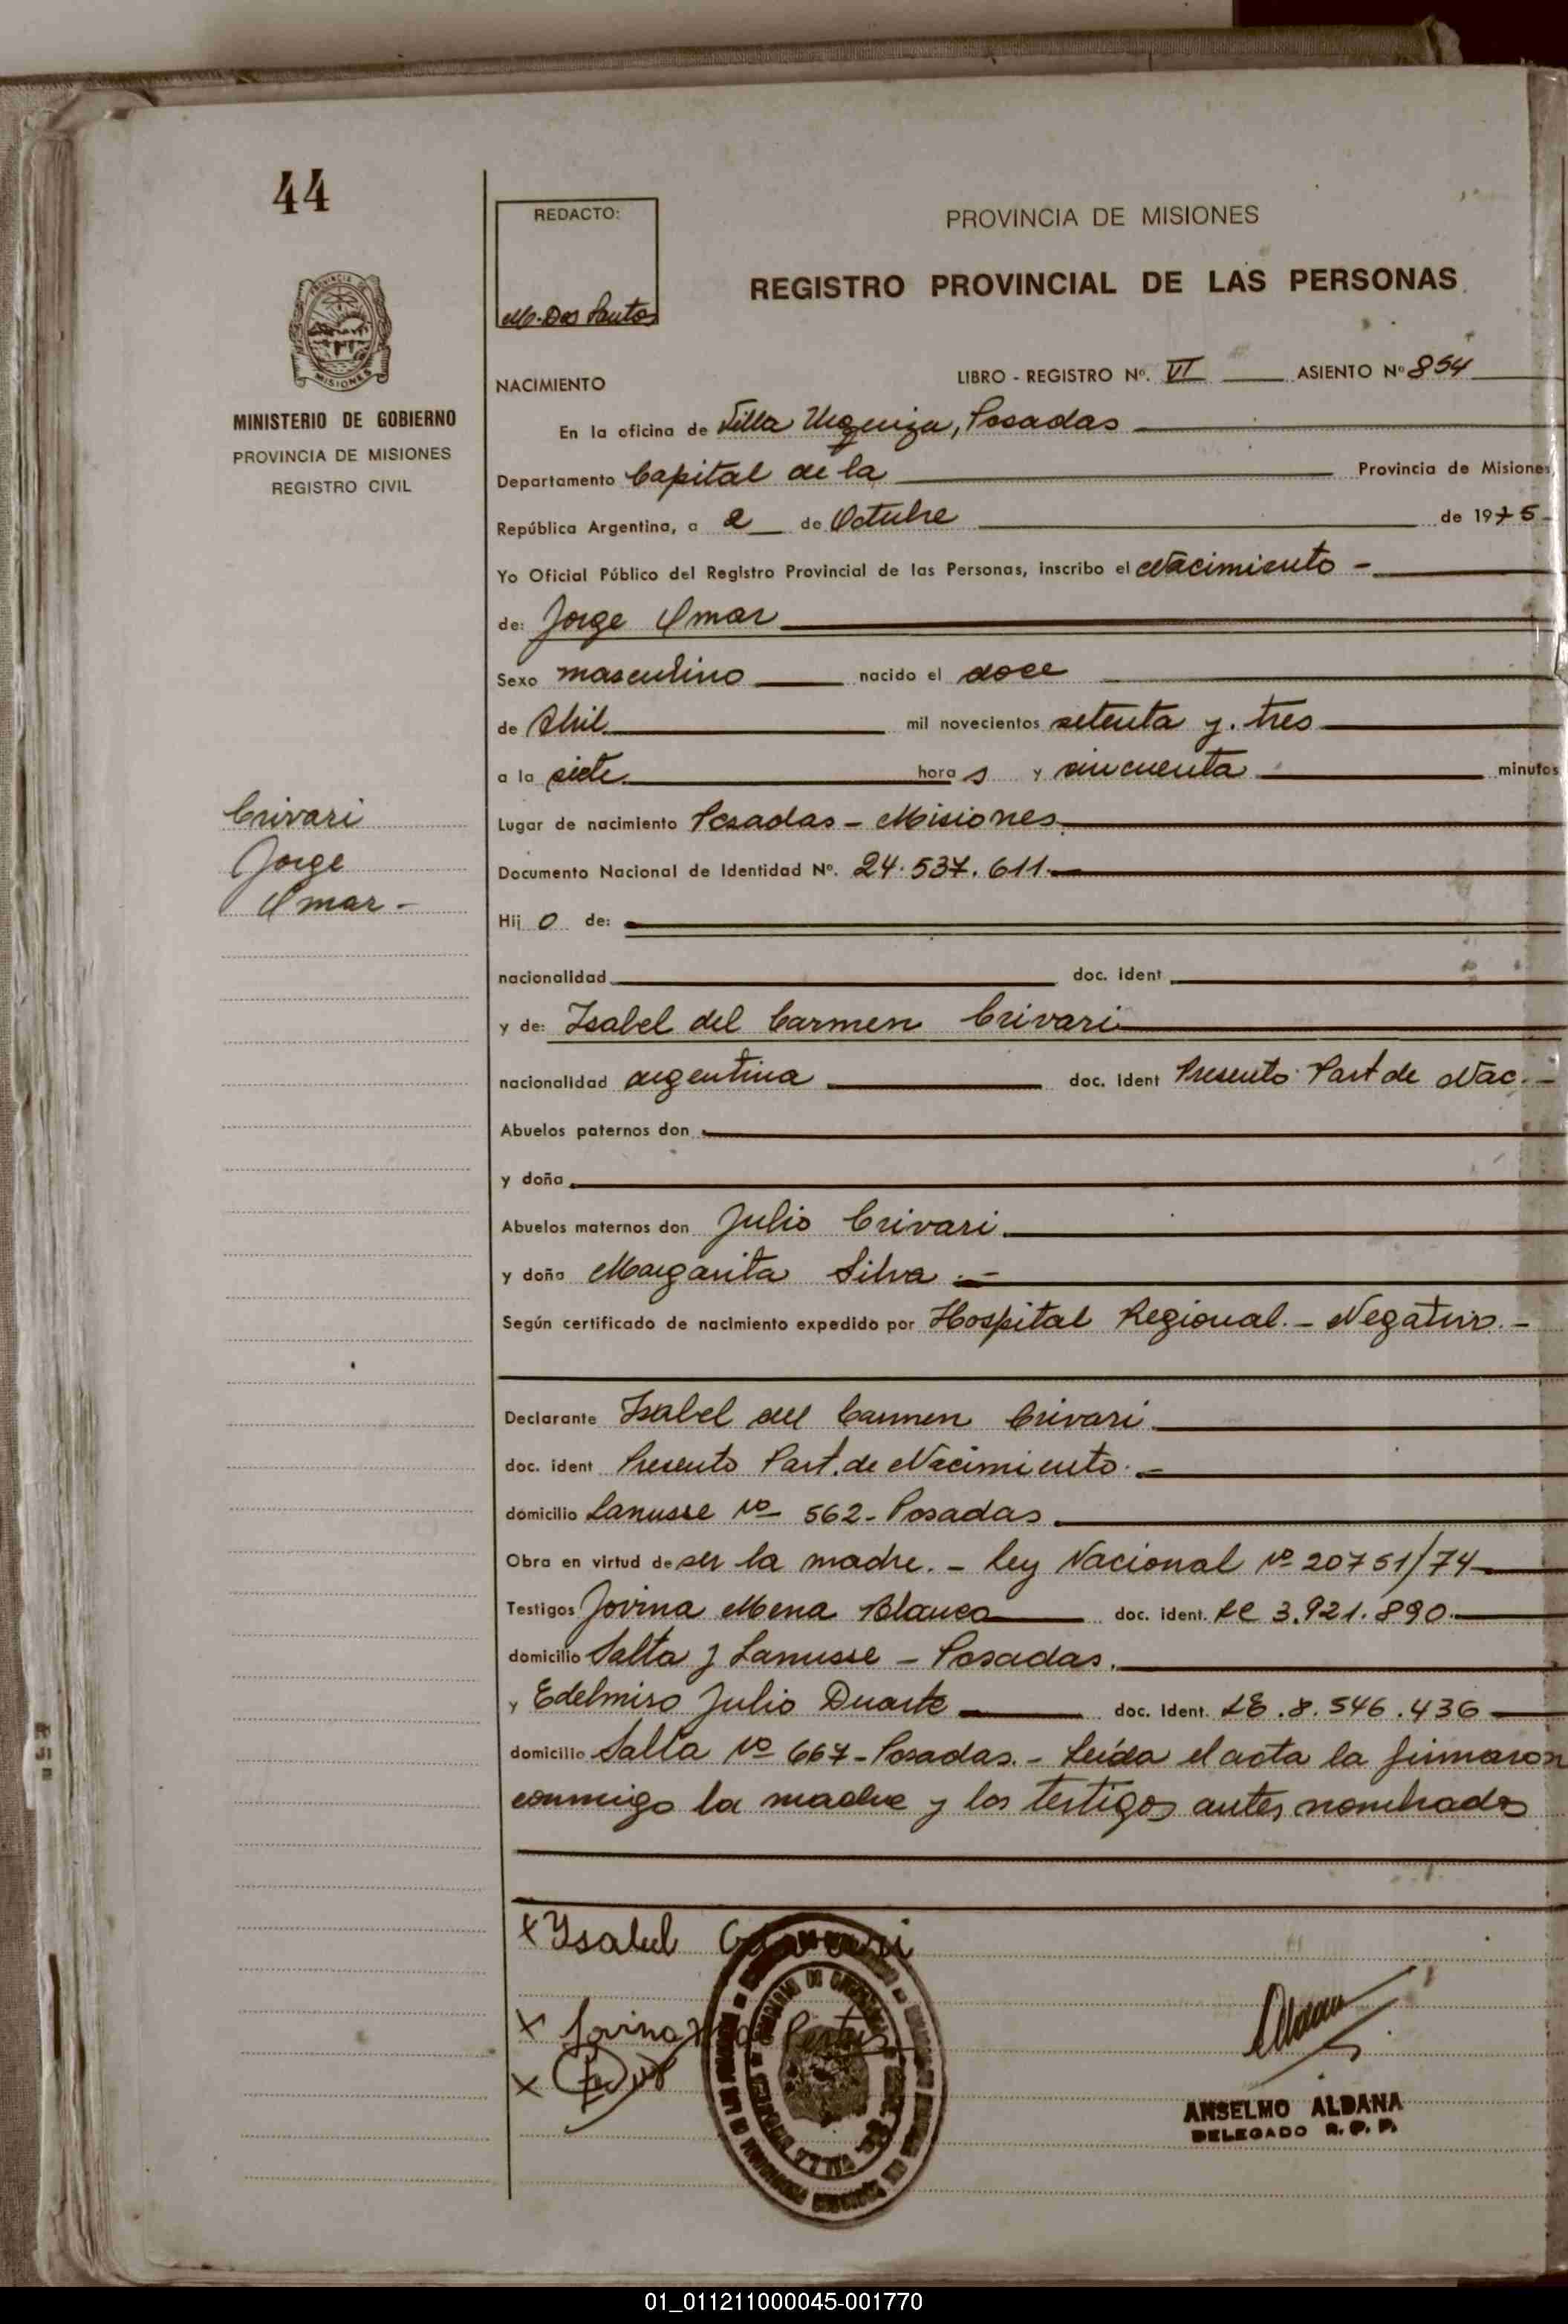 44
REDACTO:
M. Dos Santos
PROVINCIA DE MISIONES
REGISTRO PROVINCIAL DE LAS PERSONAS
MISIONES
MINISTERIO DE GOBIERNO
PROVINCIA DE MISIONES
REGISTRO CIVIL
NACIMIENTO LIBRO - REGISTRO Nº. VI ASIENTO Nº 854
En la oficina de Villa Urquiza, Posadas
Departamento Capital de la Provincia de Misiones
República Argentina, a 2 de Octubre de 1975-
Yo Oficial Público del Registro Provincial de las Personas, inscribo el Nacimiento -
de: Jorge Omar
Sexo masculino nacido el doce
de Abril mil novecientos setenta y. tres
a la siete hora s y cincuenta minutos
Crivari
Jorge
Omar -
Lugar de nacimiento Posadas - Misiones
Documento Nacional de Identidad Nº. 24.537.611.-
Hij o de:
nacionalidad doc. ident
y de: Isabel del Carmen Crivari
nacionalidad argentina doc. Ident Presento Part de Nac. -
Abuelos paternos don
y doña
Abuelos maternos don Julio Crivari
y doña Margarita Silva .-
Según certificado de nacimiento expedido por Hospital Regional. - Negativo. -
Declarante Isabel del Carmen Crivari
doc. ident Presento Part. de Nacimiento. -
domicilio Lanusse Nº 562 - Posadas
Obra en virtud de ser la madre. - Ley Nacional Nº 20751/74
Testigos Jovina Mena Blanco doc. ident. LC 3.921.890.
domicilio Salta y Lanusse - Posadas.
y Edelmiro Julio Duarte doc. Ident. LE .8.546.436
domicilio Salta Nº 667 - Posadas. - Leída el acta la firmaron
conmigo la madre y los testigos antes nombrados
x Ysabel
x Jovina
x
ANSELMO ALDANA
DELEGADO R. P. P.
01_011211000045-001770